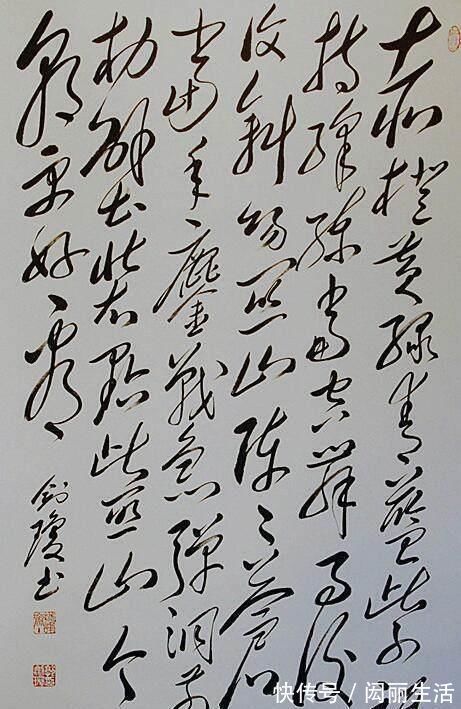 赤橙黄绿青蓝紫谁
持彩练当空舞雨后
复斜阳关山阵阵苍
当年鏖战急弹洞前
村壁装点此关山今
朝更好看
剑琼书
快传号／闳丽生活